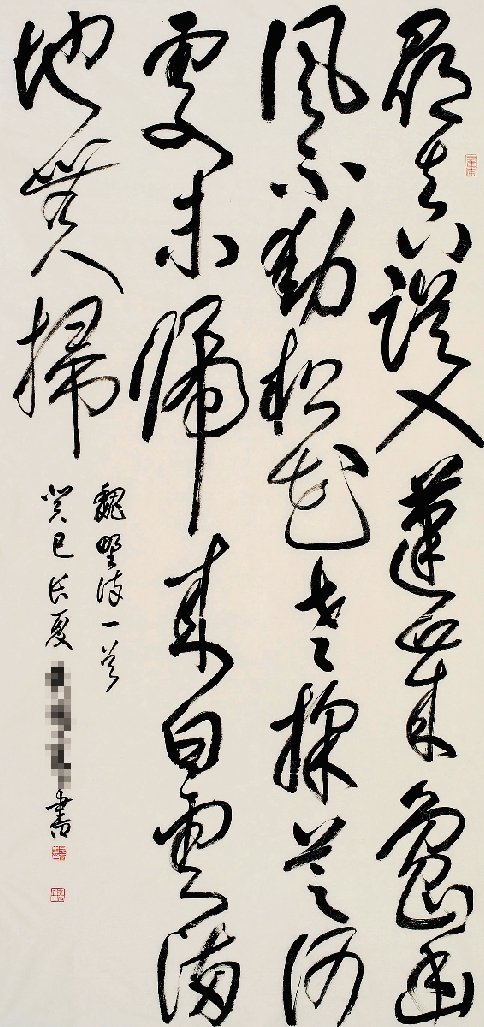 尋真誤入蓬萊島幽
風不動松花老採芝何
處未歸來白雲滿
地無人掃
魏野詩一首
癸巳長夏
書